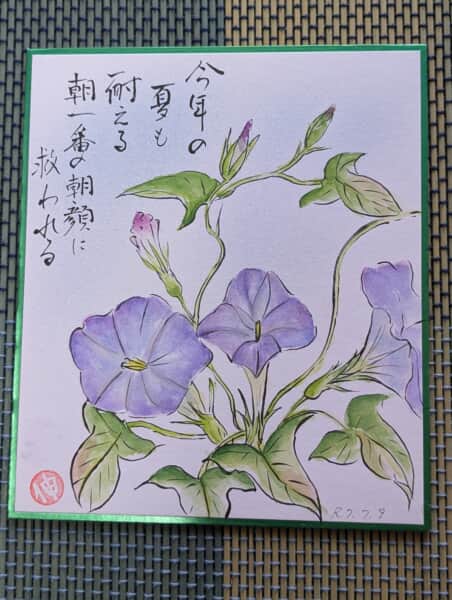 今年の
夏も
耐える
朝一番の朝顔に
救われる
伸
R7.7.9